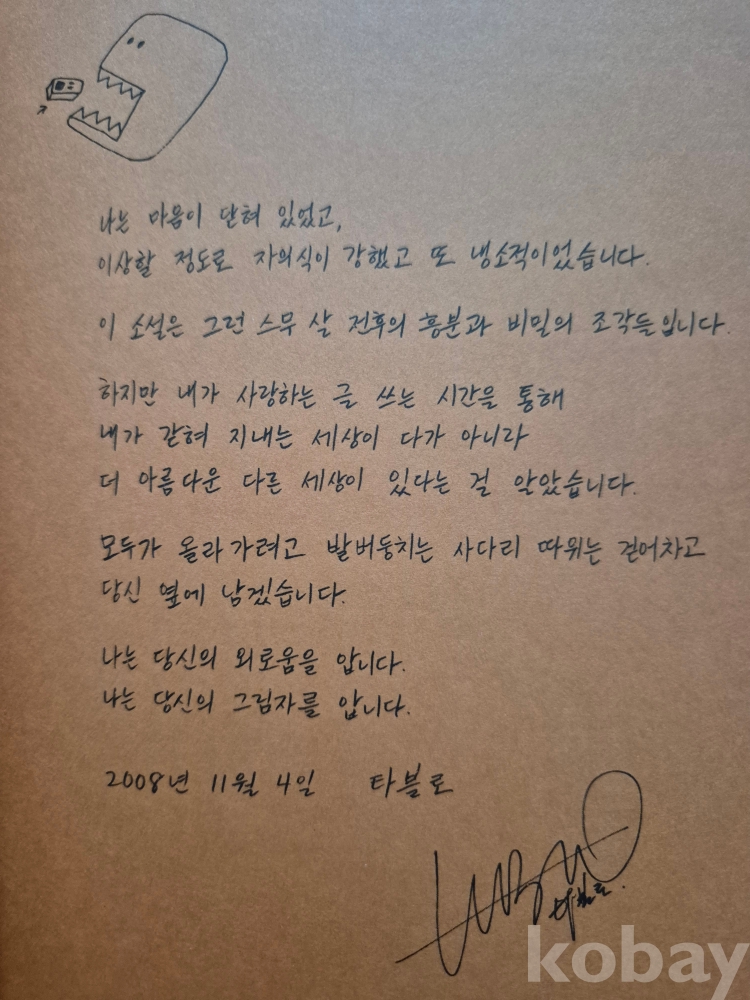 나는 마음이 닫혀 있었고,
이상할 정도로 자의식이 강했고 또 냉소적이었습니다.
이 소설은 그런 스무 살 전후의 흥분과 비밀의 조각들입니다.
하지만 내가 사랑하는 글 쓰는 시간을 통해
내가 갇혀 지내는 세상이 다가 아니라
더 아름다운 다른 세상이 있다는 걸 알았습니다.
모두가 올라가려고 발버둥치는 사다리 따위는 걷어차고
당신 옆에 남겠습니다.
나는 당신의 외로움을 압니다.
나는 당신의 그림자를 압니다.
2008년 11월 4일 타블로
타블로.
kobay